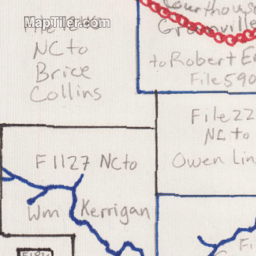 MapTiler.com
NC to
Brice
Collins
Courthouse
to Robert
File 590
File 22
NC to
Owen Lin
F 1127 NC to
Wm Kerrigan